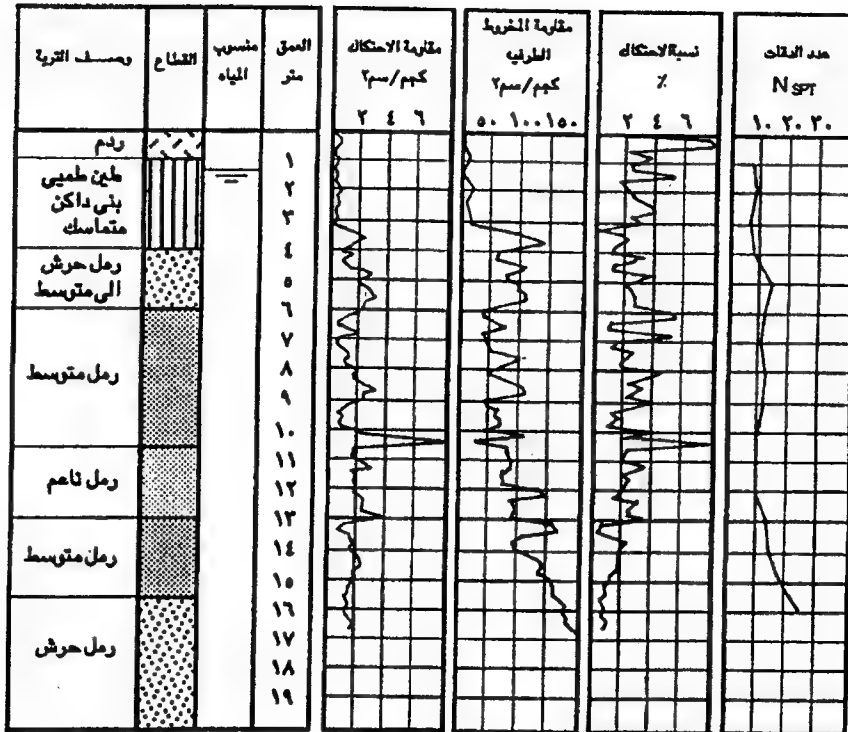 وصف التربة
القطاع
منسوب
المياه
العمق
متر
مقاومة الاحتكاك
كجم/سم٢
٢ ٤ ٦
مقاومة المخروط
الطرفى
كجم/سم٢
٥٠ ١٠٠ ١٥٠
نسبة الاحتكاك
٪
٢ ٤ ٦
عدد الدقات
N SPT
١٠ ٢٠ ٣٠
ردم
طين طميى
بنى داكن
متماسك
رمل حرش
الى متوسط
رمل متوسط
رمل ناعم
رمل متوسط
رمل حرش
١
٢
٣
٤
٥
٦
٧
٨
٩
١٠
١١
١٢
١٣
١٤
١٥
١٦
١٧
١٨
١٩